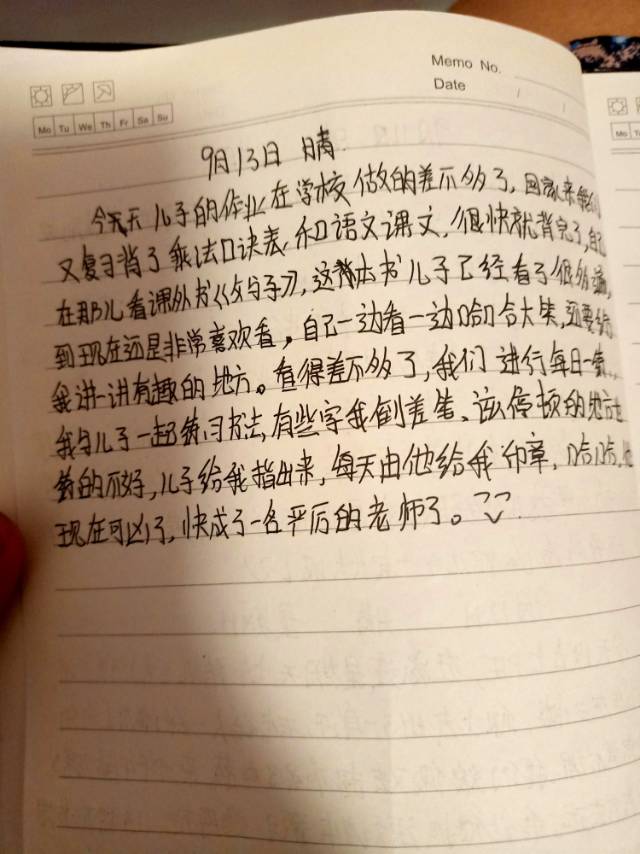 Memo No.
Date / /
Mo Tu We Th Fr Sa Su
Mo
9月13日 晴
今天儿子的作业在学校做的差不多了,回家来我们
又复习背了乘法口诀表,和语文课文,很快就背完了,自己
在那儿看课外书《父与子》,这本书儿子已经看了很多遍,
到现在还是非常喜欢看。自己一边看一边哈哈大笑,还要给
我讲一讲有趣的地方。看得差不多了,我们进行每日一练,
我与儿子一起练习书法,有些字我倒差笔、该停顿的地方
练的不好,儿子给我指出来,每天由他给我印章,哈哈,他
现在可以了,快成了一名严厉的老师了。